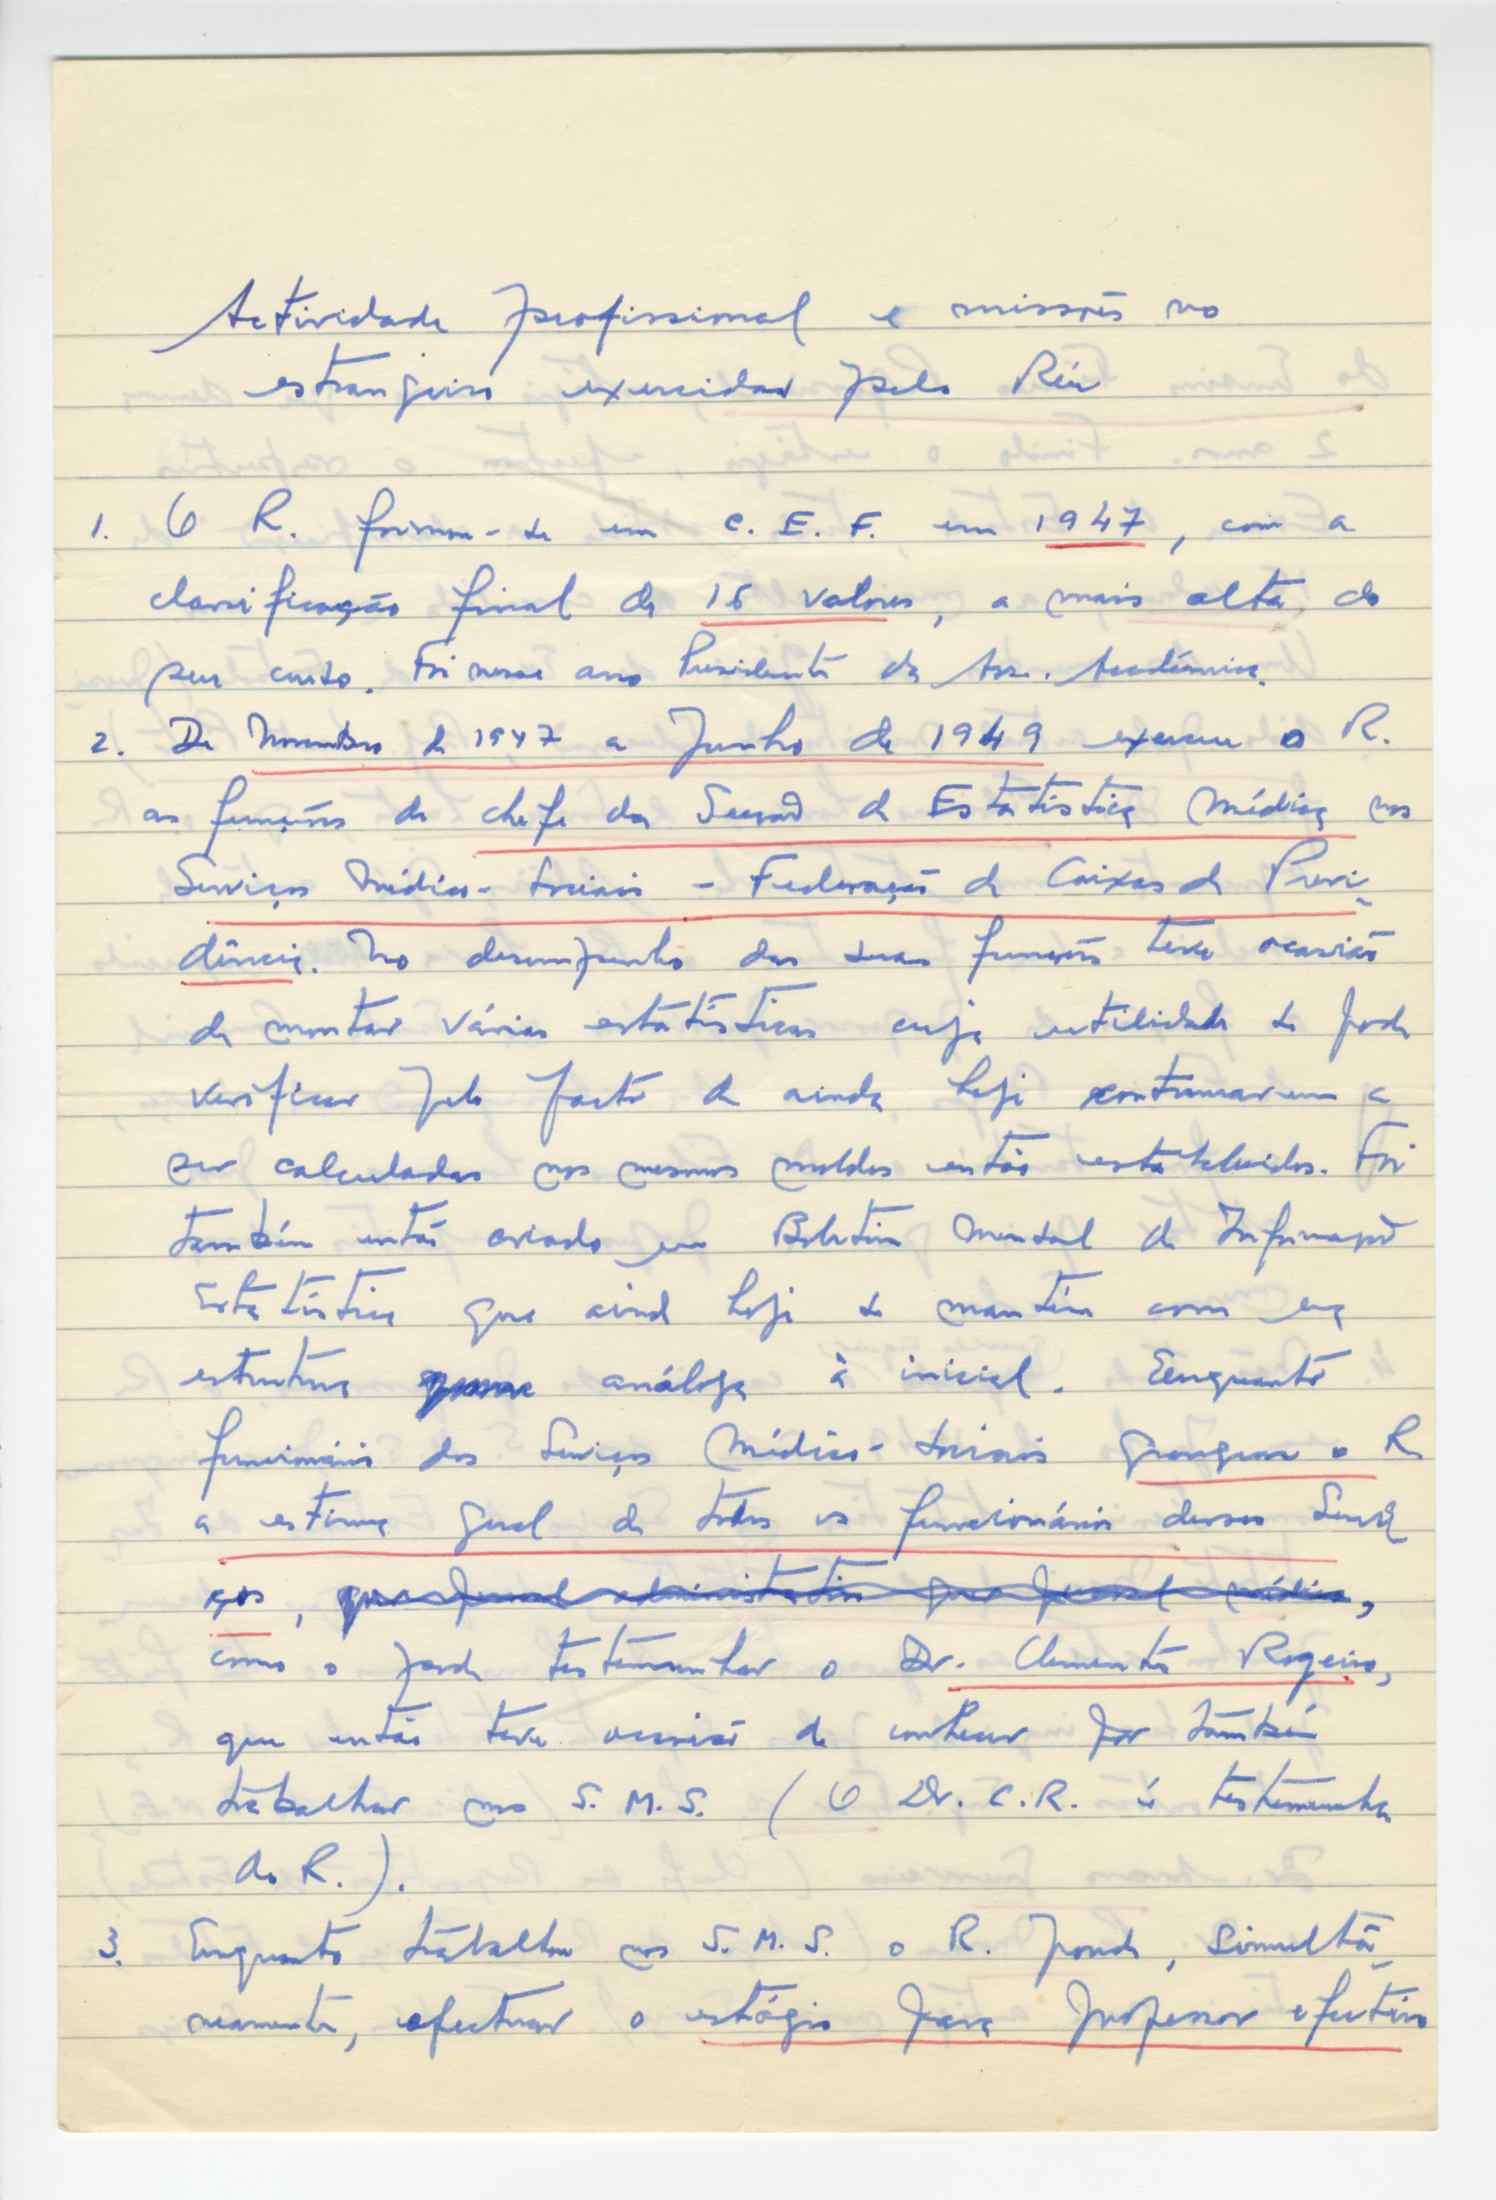 Actividade profissional e missões no
estrangeiro exercidas pelo Réu
1. O R. formou-se em C. E. F. em 1947, com a
classificação final de 16 valores, a mais alta do
seu curso. Foi nesse ano Presidente da Ass. Académica.
2. De Novembro de 1947 a Junho de 1949 exerceu o R.
as funções de chefe da Secção de Estatística Médica nos
Serviços Médico-Sociais - Federação de Caixas de Previ-
dência. No desempenho das suas funções teve ocasião
de montar várias estatísticas cuja utilidade se pode
verificar pelo facto de ainda hoje continuarem a
ser calculadas nos mesmos moldes então estabelecidos. Foi
também então criado um Boletim Mensal de Informação
Estatística que ainda hoje se mantém com uma
estrutura análoga à inicial. Enquanto
funcionário dos Serviços Médico-Sociais grangeou o R
a estima geral de todos os funcionários desses Servi
ços, quer pessoal administrativo quer pessoal médico,
como o pode testemunhar o Dr. Clemente Rogeiro,
que então teve ocasião de conhecer por também
trabalhar nos S. M. S. (O Dr. C. R. é testemunha
do R.).
3. Enquanto trabalhou nos S. M. S. o R. pôde, simultâ-
neamente, efectuar o estágio para professor efectivo